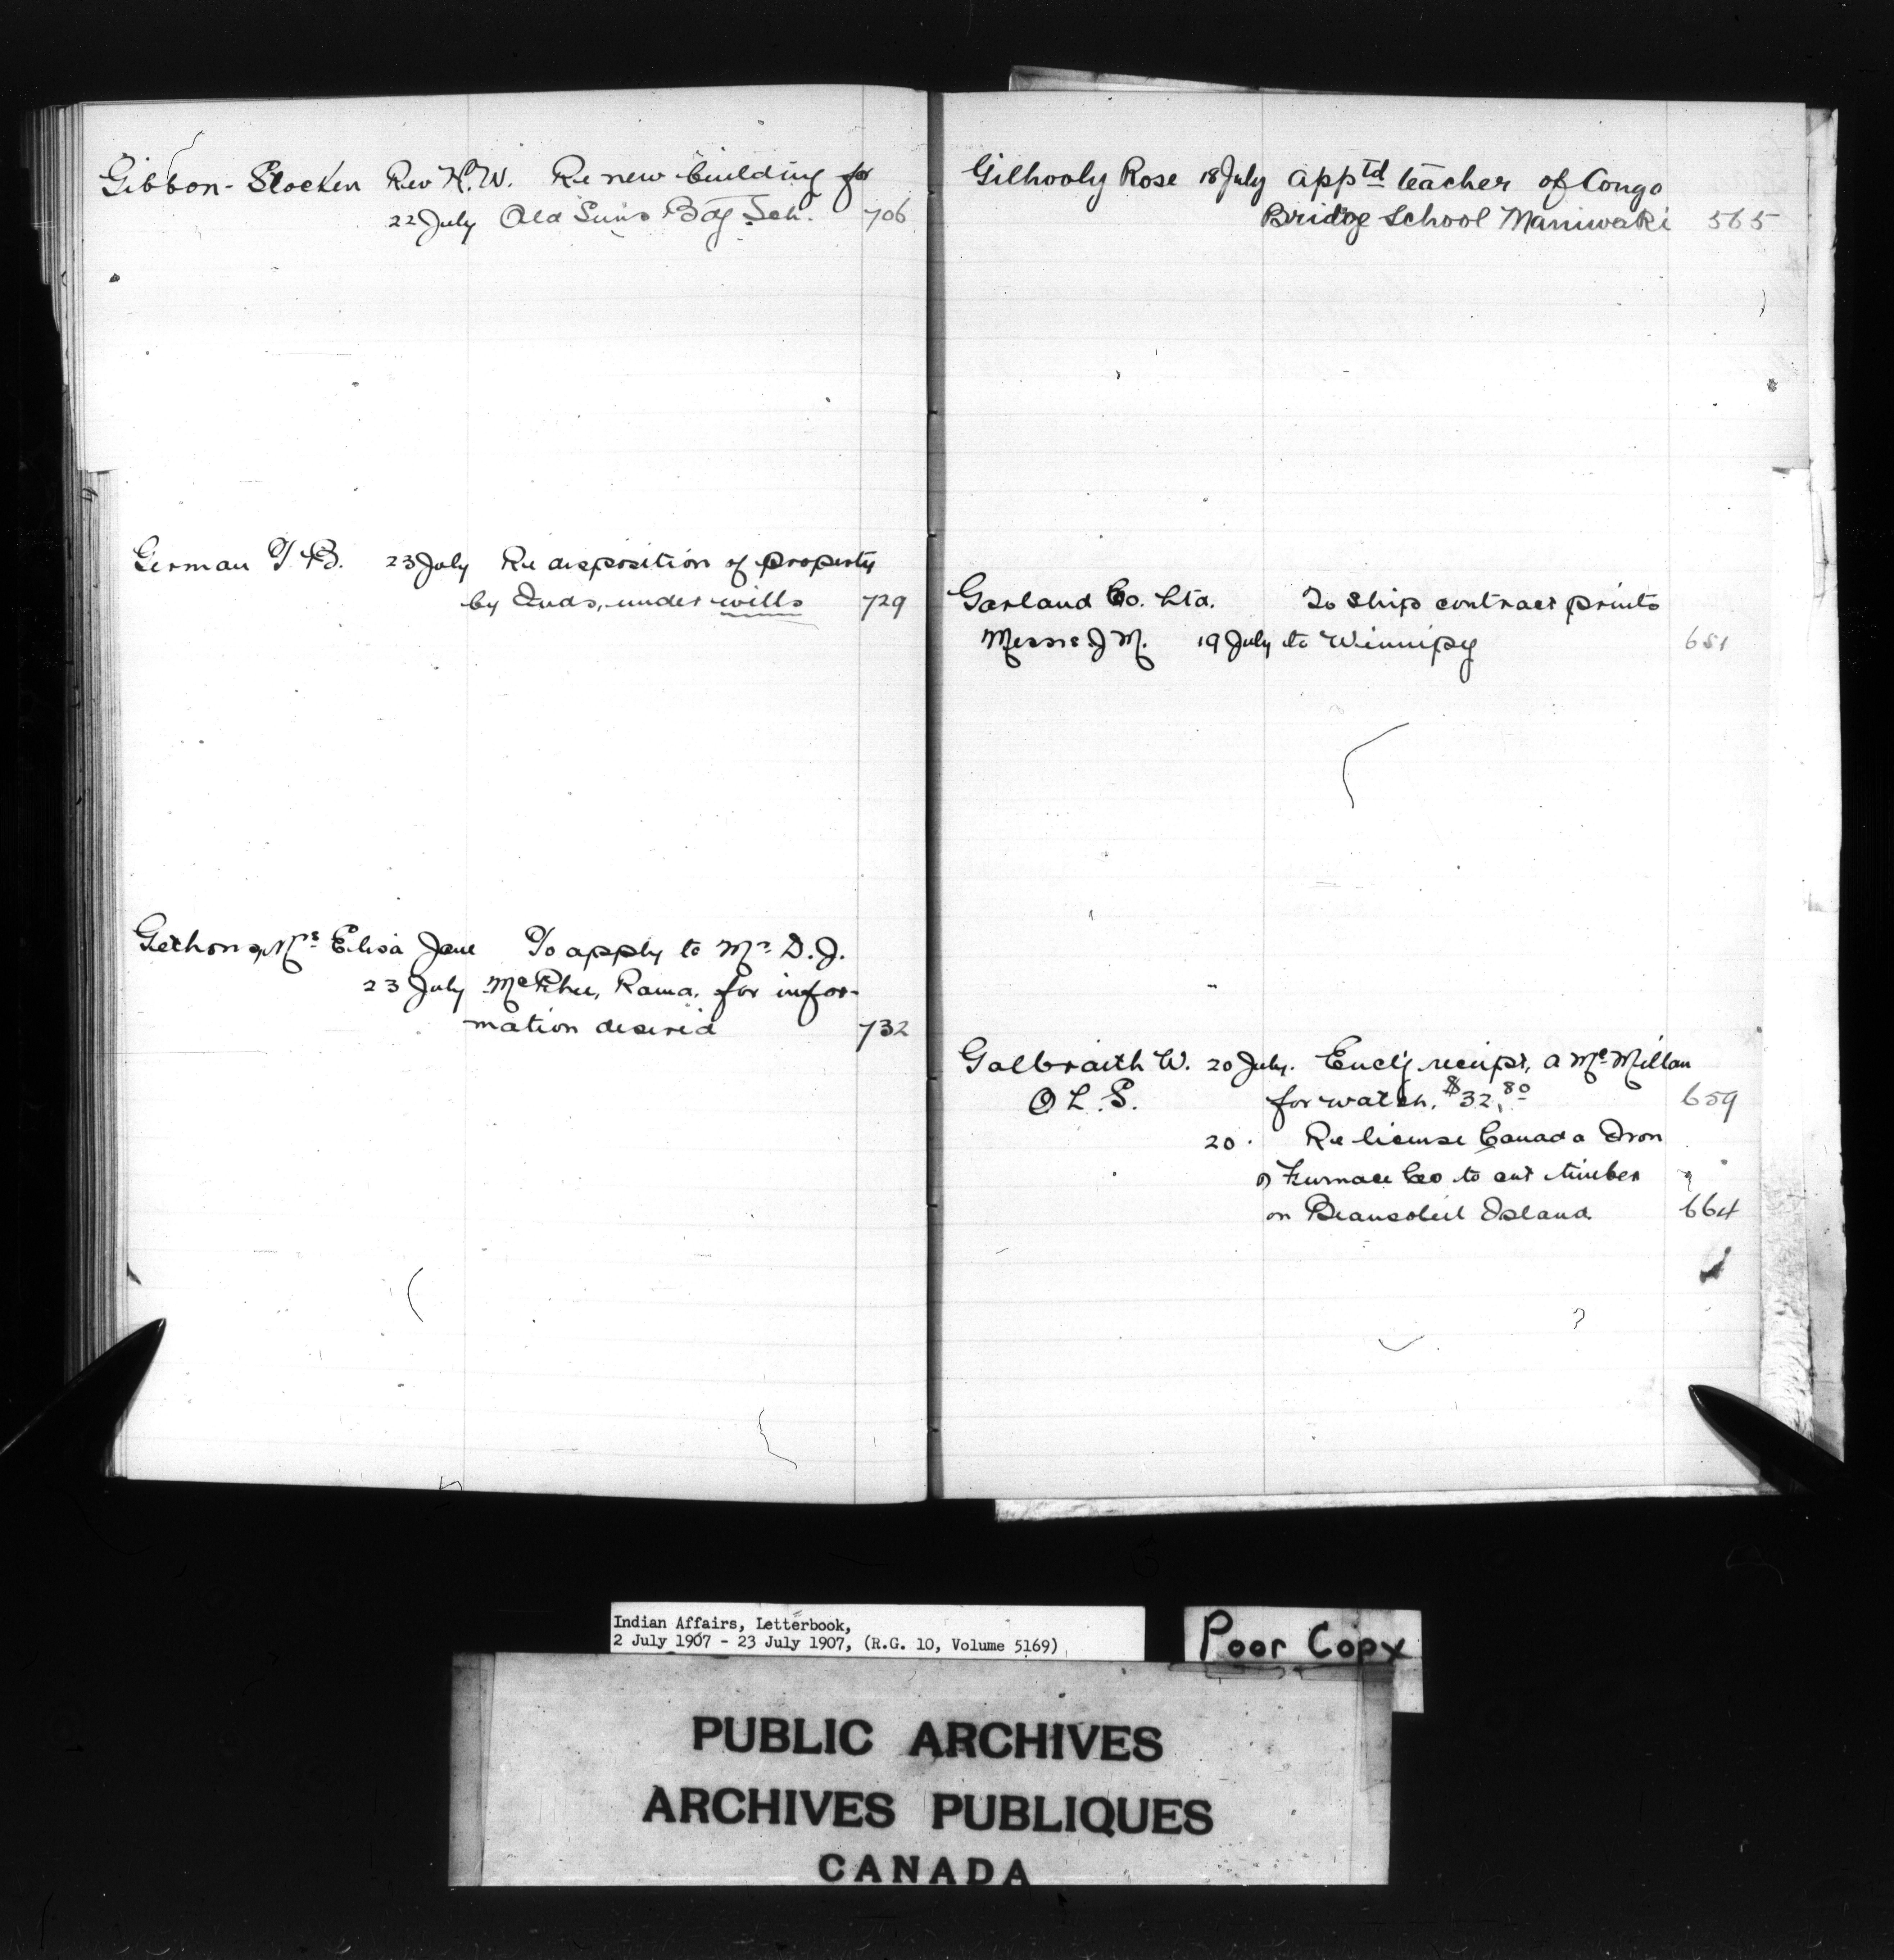 Gibbon-Stocken Rev H.W. Re new building for
22 July Old Suns Bdg Sch. 706
German T. B. 23 July Re disposition of property
by Inds, under wills 729
Mrs Eliza Jane To apply to Mr D.J.
23 July McPhee, Rama, for infor-
mation desired 732
Gilhooly Rose 18 July apptd teacher of Congo
Bridge School Maniwaki 565
Garland Co. Ltd. To ship contract prints
Messrs J M. 19 July to Winnipeg 651
Galbraith W. 20 July. Enclg receipt, A McMillan
O L. S. for watch, $32.80 659
20. Re license Canada Iron
Furnace Co to cut timber
on Beausoleil Island 664
Indian Affairs, Letterbook,
2 July 1907 - 23 July 1907, (R.G. 10, Volume 5169)
Poor Copy
PUBLIC ARCHIVES
ARCHIVES PUBLIQUES
CANADA